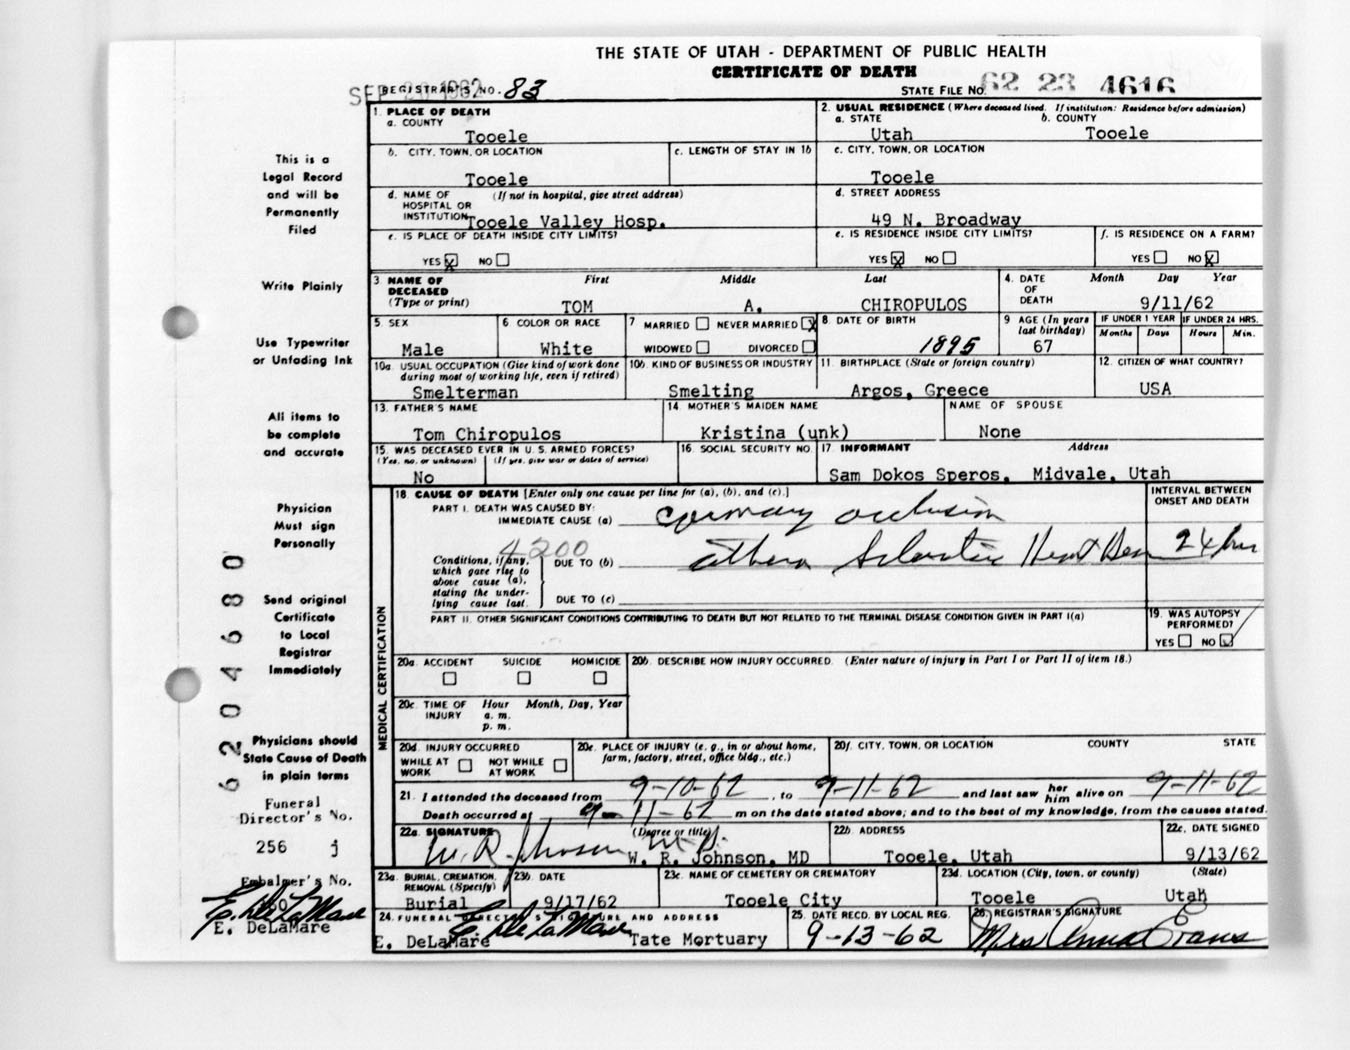 THE STATE OF UTAH - DEPARTMENT OF PUBLIC HEALTH
CERTIFICATE OF DEATH
SEP 20 1962
REGISTRAR'S NO. 83
STATE FILE NO. 62 23 4616
1. PLACE OF DEATH
a. COUNTY
Tooele
2. USUAL RESIDENCE (Where deceased lived. If institution: Residence before admission)
a. STATE b. COUNTY
Utah Tooele
b. CITY, TOWN, OR LOCATION
Tooele
c. LENGTH OF STAY IN 1b
c. CITY, TOWN, OR LOCATION
Tooele
d. NAME OF HOSPITAL OR INSTITUTION (If not in hospital, give street address)
Tooele Valley Hosp.
d. STREET ADDRESS
49 N. Broadway
e. IS PLACE OF DEATH INSIDE CITY LIMITS?
YES X NO
e. IS RESIDENCE INSIDE CITY LIMITS?
YES X NO
f. IS RESIDENCE ON A FARM?
YES NO X
3. NAME OF DECEASED (Type or print) First Middle Last
TOM A. CHIROPULOS
4. DATE OF DEATH Month Day Year
9/11/62
5. SEX
Male
6. COLOR OR RACE
White
7. MARRIED NEVER MARRIED X
WIDOWED DIVORCED
8. DATE OF BIRTH
1895
9. AGE (In years last birthday)
67
IF UNDER 1 YEAR IF UNDER 24 HRS.
Months Days Hours Min.
10a. USUAL OCCUPATION (Give kind of work done during most of working life, even if retired)
Smelterman
10b. KIND OF BUSINESS OR INDUSTRY
Smelting
11. BIRTHPLACE (State or foreign country)
Argos, Greece
12. CITIZEN OF WHAT COUNTRY?
USA
13. FATHER'S NAME
Tom Chiropulos
14. MOTHER'S MAIDEN NAME
Kristina (unk)
NAME OF SPOUSE
None
15. WAS DECEASED EVER IN U.S. ARMED FORCES?
(Yes, no, or unknown) (If yes, give war or dates of service)
No
16. SOCIAL SECURITY NO.
17. INFORMANT Address
Sam Dokos Speros, Midvale, Utah
18. CAUSE OF DEATH [Enter only one cause per line for (a), (b), and (c).]
INTERVAL BETWEEN ONSET AND DEATH
PART I. DEATH WAS CAUSED BY:
IMMEDIATE CAUSE (a) coronary occlusion
4200
Conditions, if any, which gave rise to above cause (a), stating the underlying cause last.
DUE TO (b) Heart 24 hrs
DUE TO (c)
PART II. OTHER SIGNIFICANT CONDITIONS CONTRIBUTING TO DEATH BUT NOT RELATED TO THE TERMINAL DISEASE CONDITION GIVEN IN PART I(a)
19. WAS AUTOPSY PERFORMED?
YES NO
MEDICAL CERTIFICATION
20a. ACCIDENT SUICIDE HOMICIDE
20b. DESCRIBE HOW INJURY OCCURRED. (Enter nature of injury in Part I or Part II of item 18.)
20c. TIME OF INJURY Hour Month, Day, Year
a. m.
p. m.
20d. INJURY OCCURRED
WHILE AT WORK NOT WHILE AT WORK
20e. PLACE OF INJURY (e. g., in or about home, farm, factory, street, office bldg., etc.)
20f. CITY, TOWN, OR LOCATION COUNTY STATE
21. I attended the deceased from 9-10-62, to 9-11-62 and last saw her him alive on 9-11-62
Death occurred at 9-11-62 m on the date stated above; and to the best of my knowledge, from the causes stated.
22a. SIGNATURE (Degree or title)
W. R. Johnson M.D.
W. R. Johnson, MD
22b. ADDRESS
Tooele, Utah
22c. DATE SIGNED
9/13/62
23a. BURIAL, CREMATION, REMOVAL (Specify)
Burial
23b. DATE
9/17/62
23c. NAME OF CEMETERY OR CREMATORY
Tooele City
23d. LOCATION (City, town, or county) (State)
Tooele Utah
24. FUNERAL DIRECTOR'S SIGNATURE AND ADDRESS
E. DeLaMare
E. DeLaMare Tate Mortuary
25. DATE RECD. BY LOCAL REG.
9-13-62
26. REGISTRAR'S SIGNATURE
Mrs Anna Evans
This is a
Legal Record
and will be
Permanently
Filed
Write Plainly
Use Typewriter
or Unfading Ink
All items to
be complete
and accurate
Physician
Must sign
Personally
Send original
Certificate
to Local
Registrar
Immediately
Physicians should
State Cause of Death
in plain terms
Funeral
Director's No.
256 j
Embalmer's No.
E. DeLaMare
E. DeLaMare
6204680